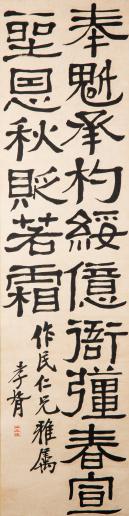 奉魁承杓綏億衙彊春宣
聖恩秋貶若霜
作民仁兄雅屬
李胥